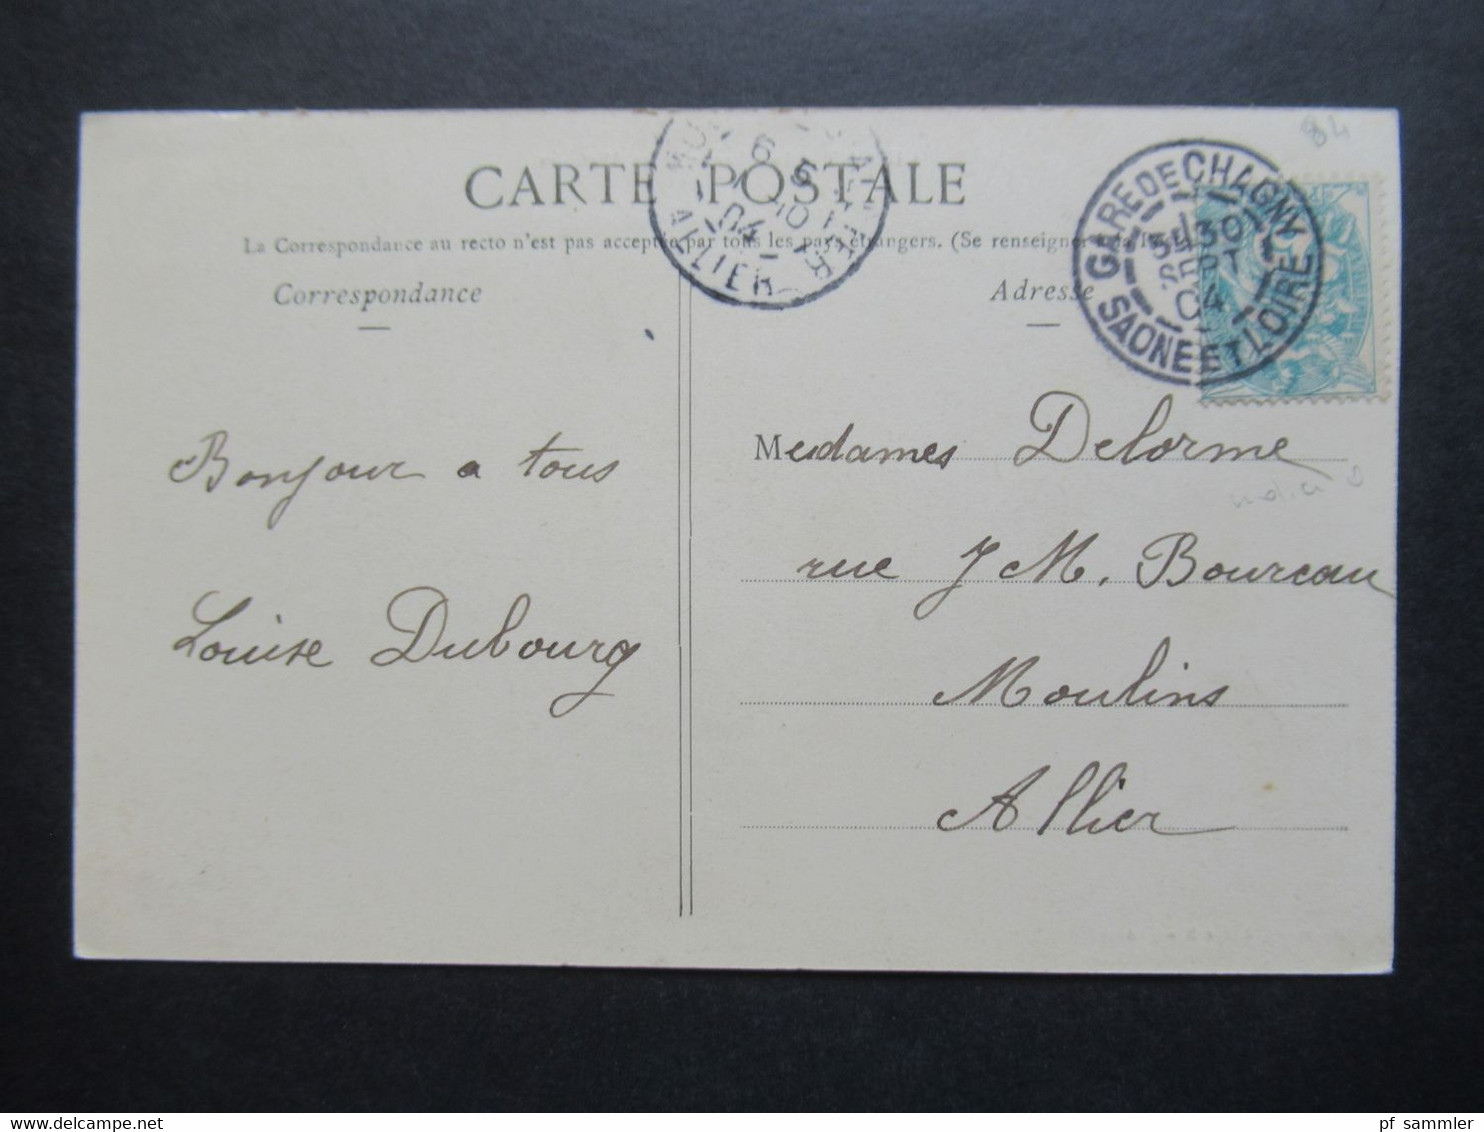 84
CARTE POSTALE
La Correspondance au recto n'est pas acceptée par tous les pays étrangers. (Se renseigner à la
Correspondance
Adresse
GARE DE CHAGNY
SEPT
04
SAONE ET LOIRE
ALLIER
Bonjour a tous
Louise Dubourg
Medames Delorme
rue J M. Boureau
Moulins
Allier
www.delcampe.net
pf_sammler